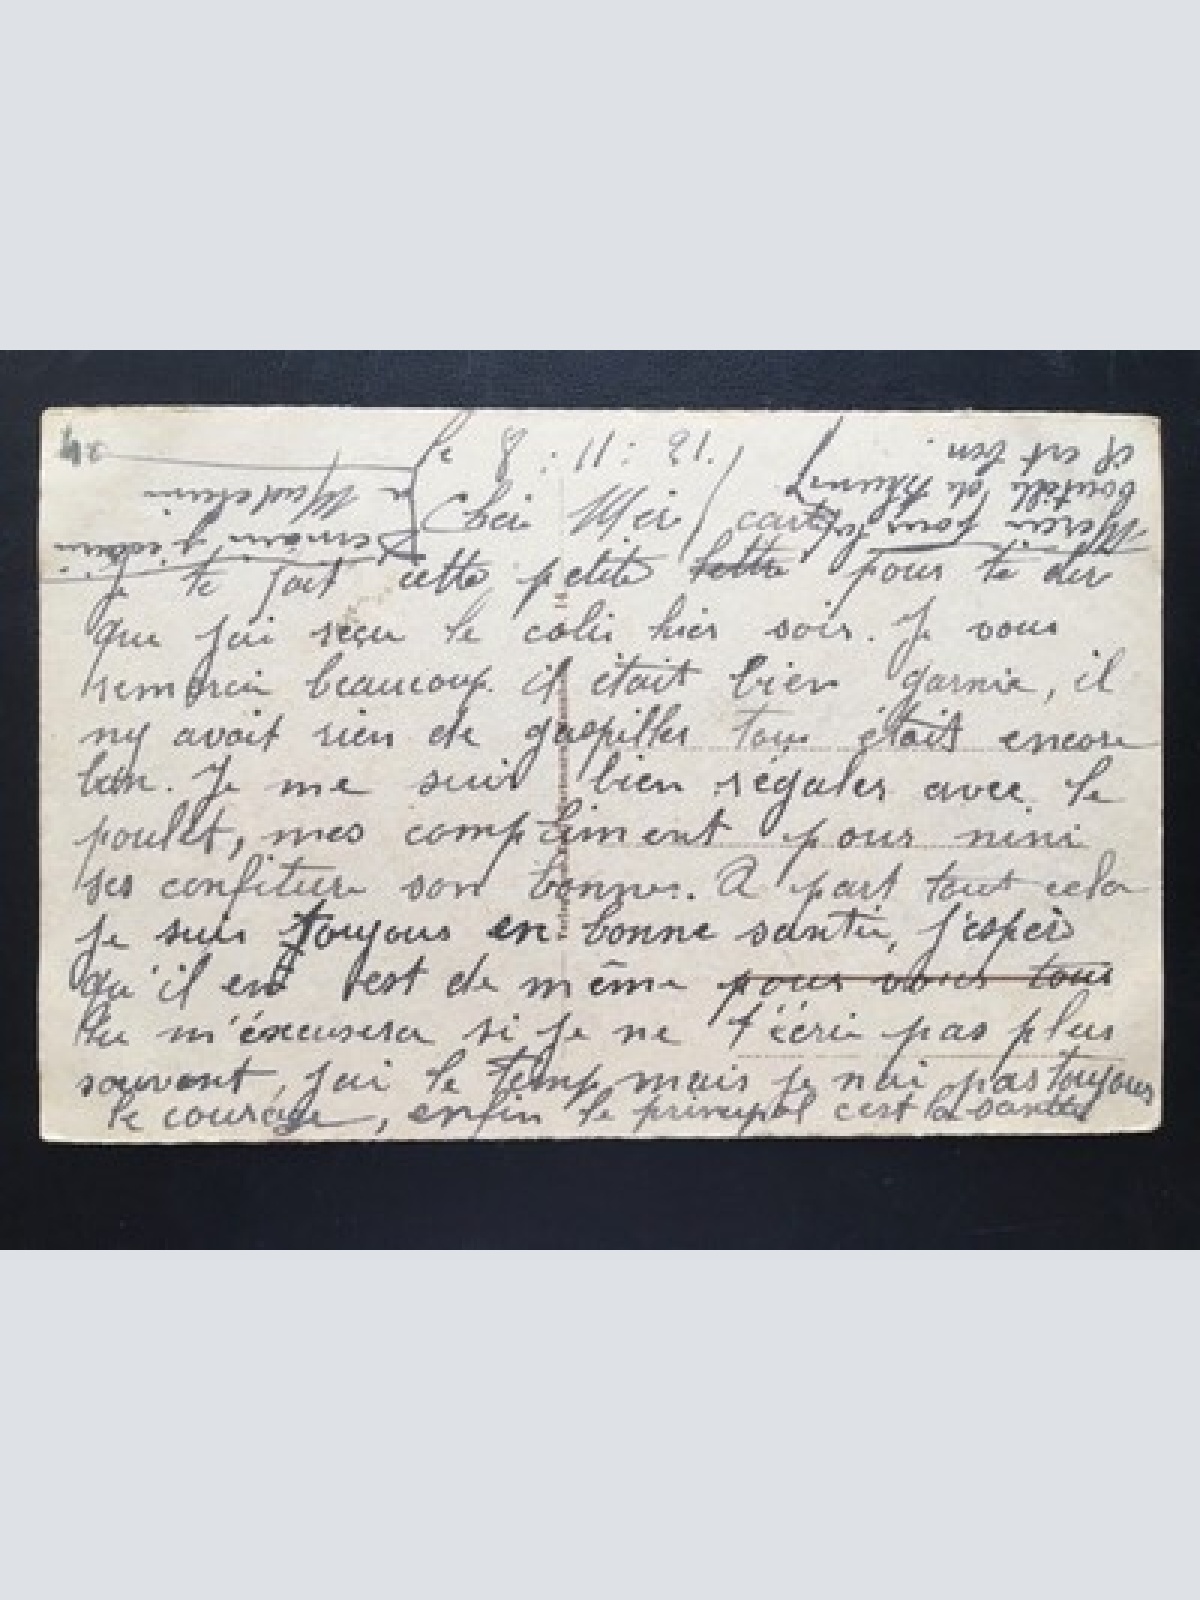 le 8 : 11 : 21.
Cher Mer
carte
Je te fait cette petite lettre pour te dir
que jai reçu le colis hier soir. Je vous
remerci beaucoup il était bien garnie, il
ny avait rien de gaspiller tous était encore
bon. Je me suis bien régaler avec le
poulet, mes compliment pour nini
ses confiture son bonnes. A part tout cela
je suis toujous en bonne santé, j'esper
qu'il en est de même pour vous tous
tu m'éxcusera si je ne t'écri pas plus
souvent, jai le temp mais je nai pas toujours
le courage, enfin le principal cest la santé
Merci pour la
bouteille de Rhum
et est bon